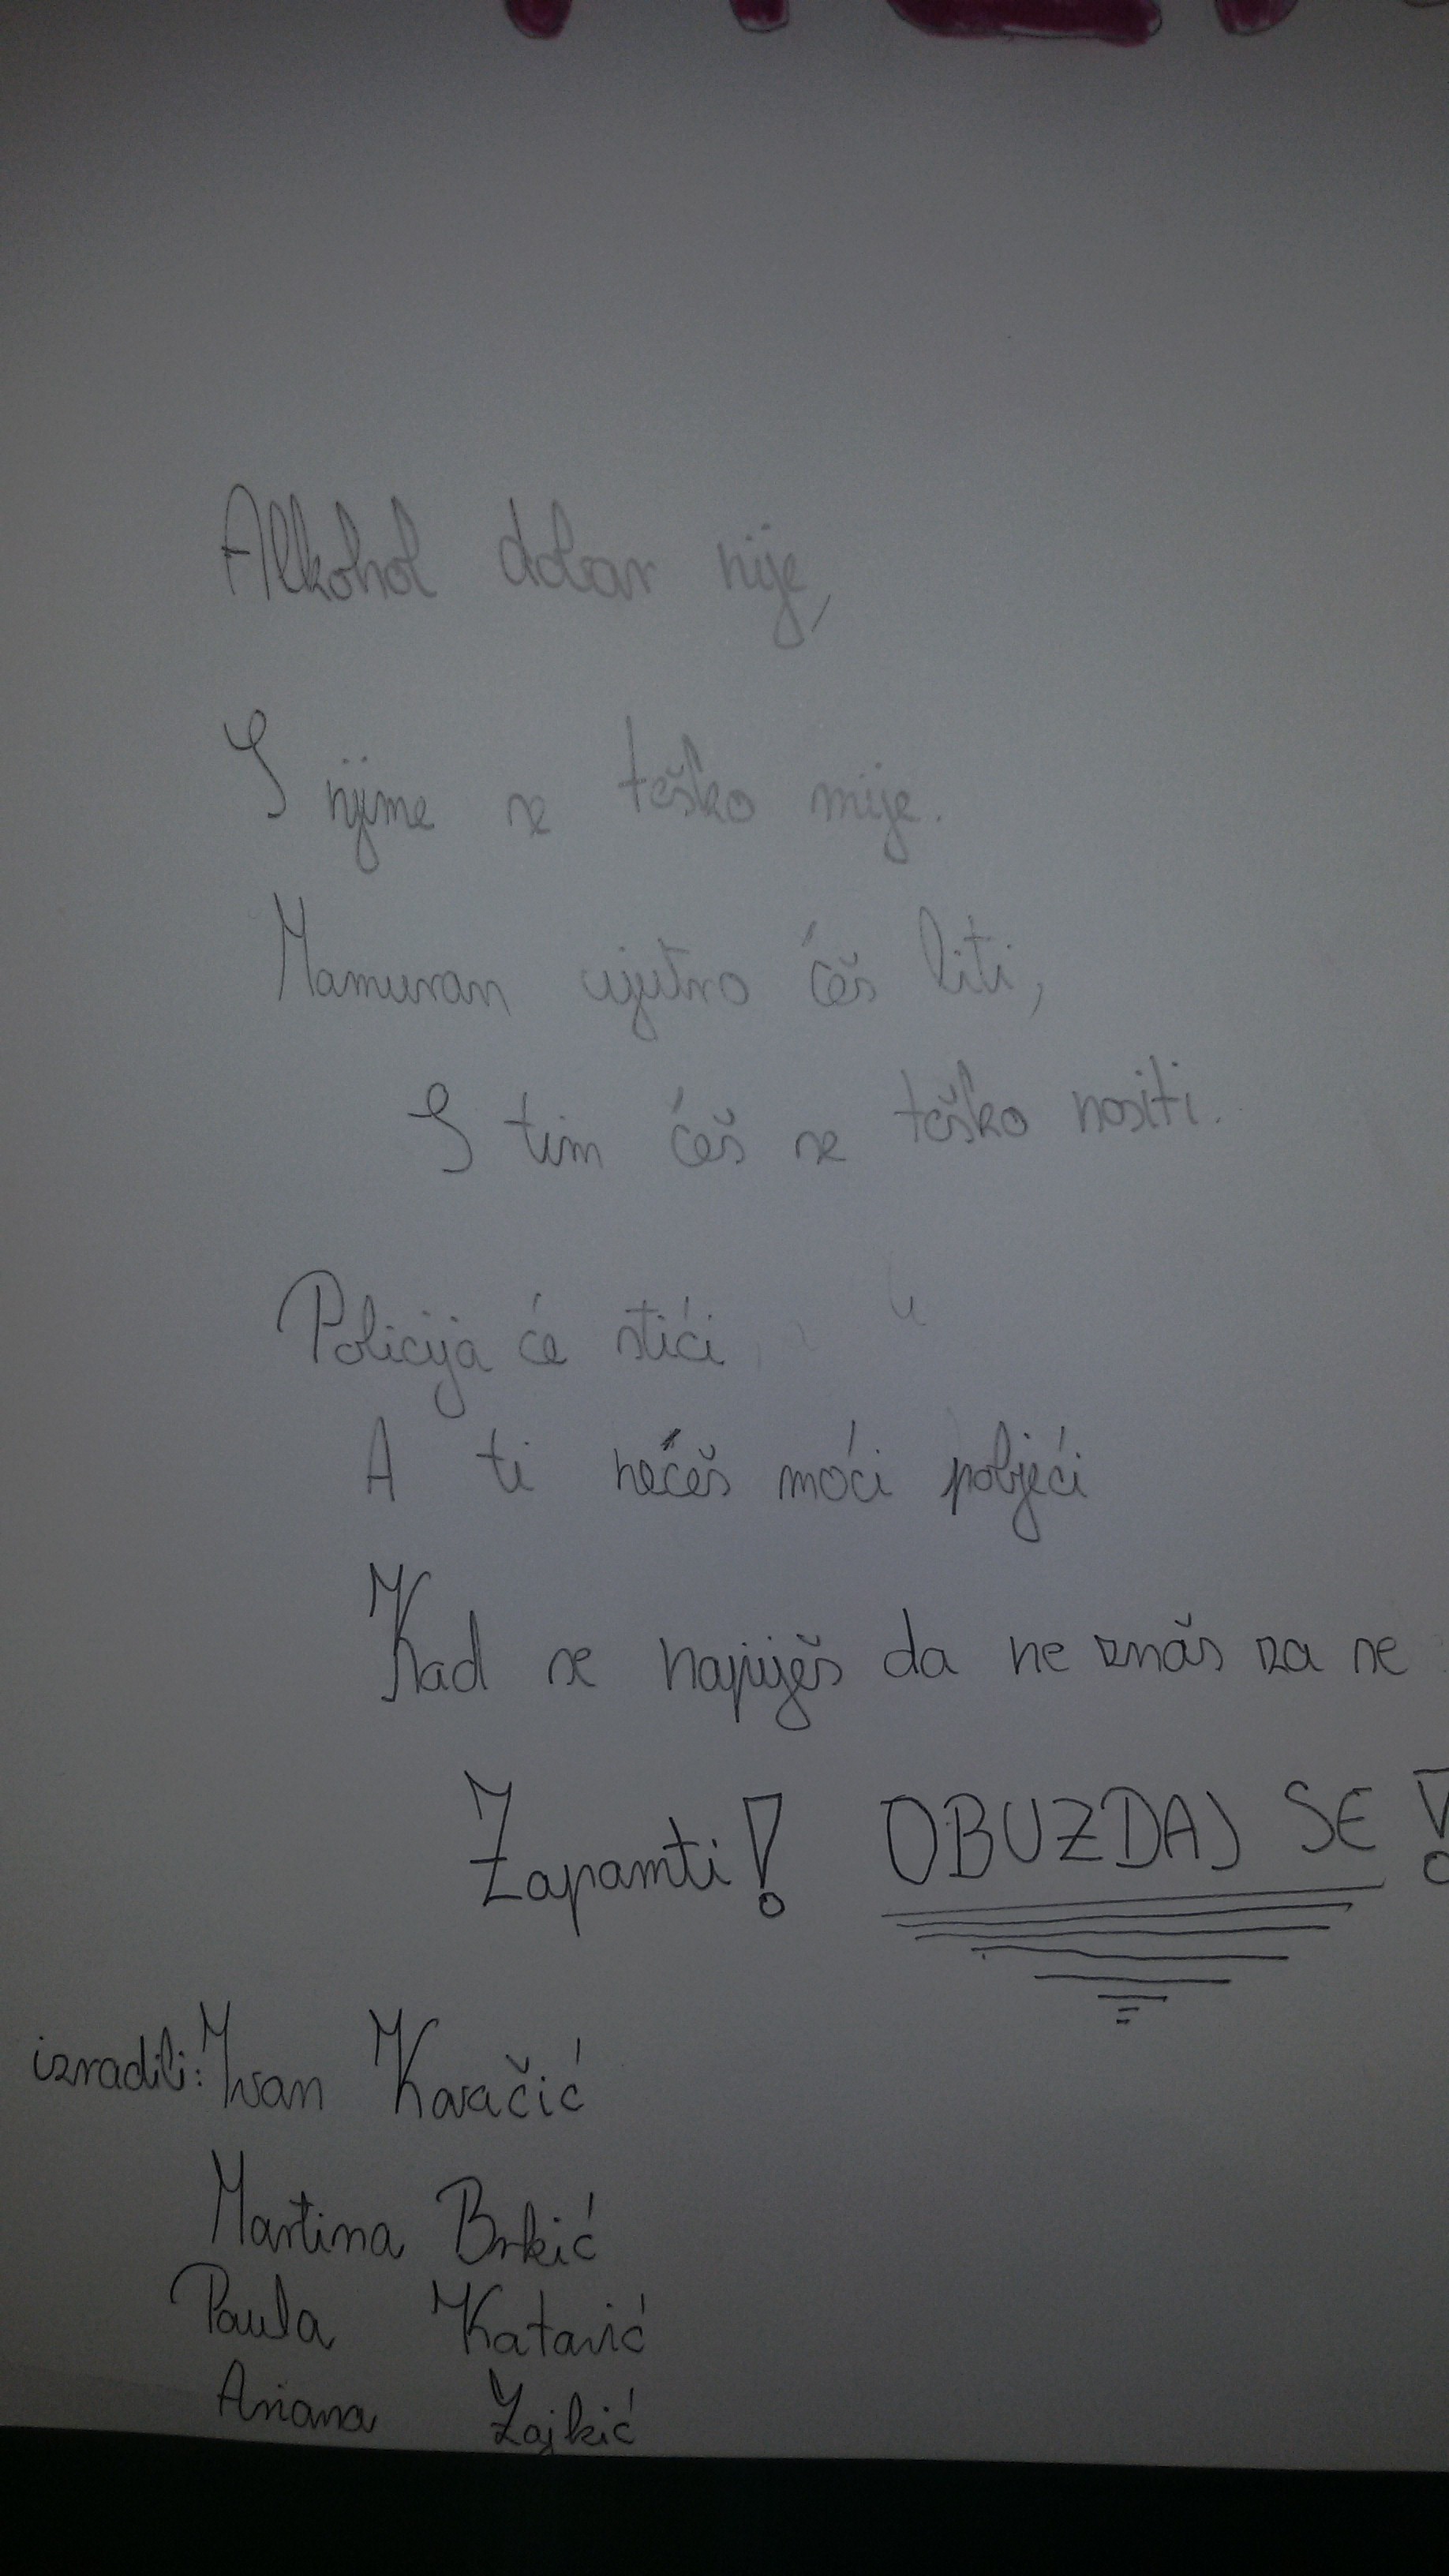 Alkohol dobar nije,
S njime se teško mije.
Mamuran ujutro ćeš biti,
S tim ćeš se teško nositi.
Policija će stići
A ti nećeš moći pobjeći
Kad se napiješ da ne znaš za se
Zapamti! OBUZDAJ SE!
izradili: Ivan Kovačić
Martina Brkić
Paula Katavić
Ariana Zajkić